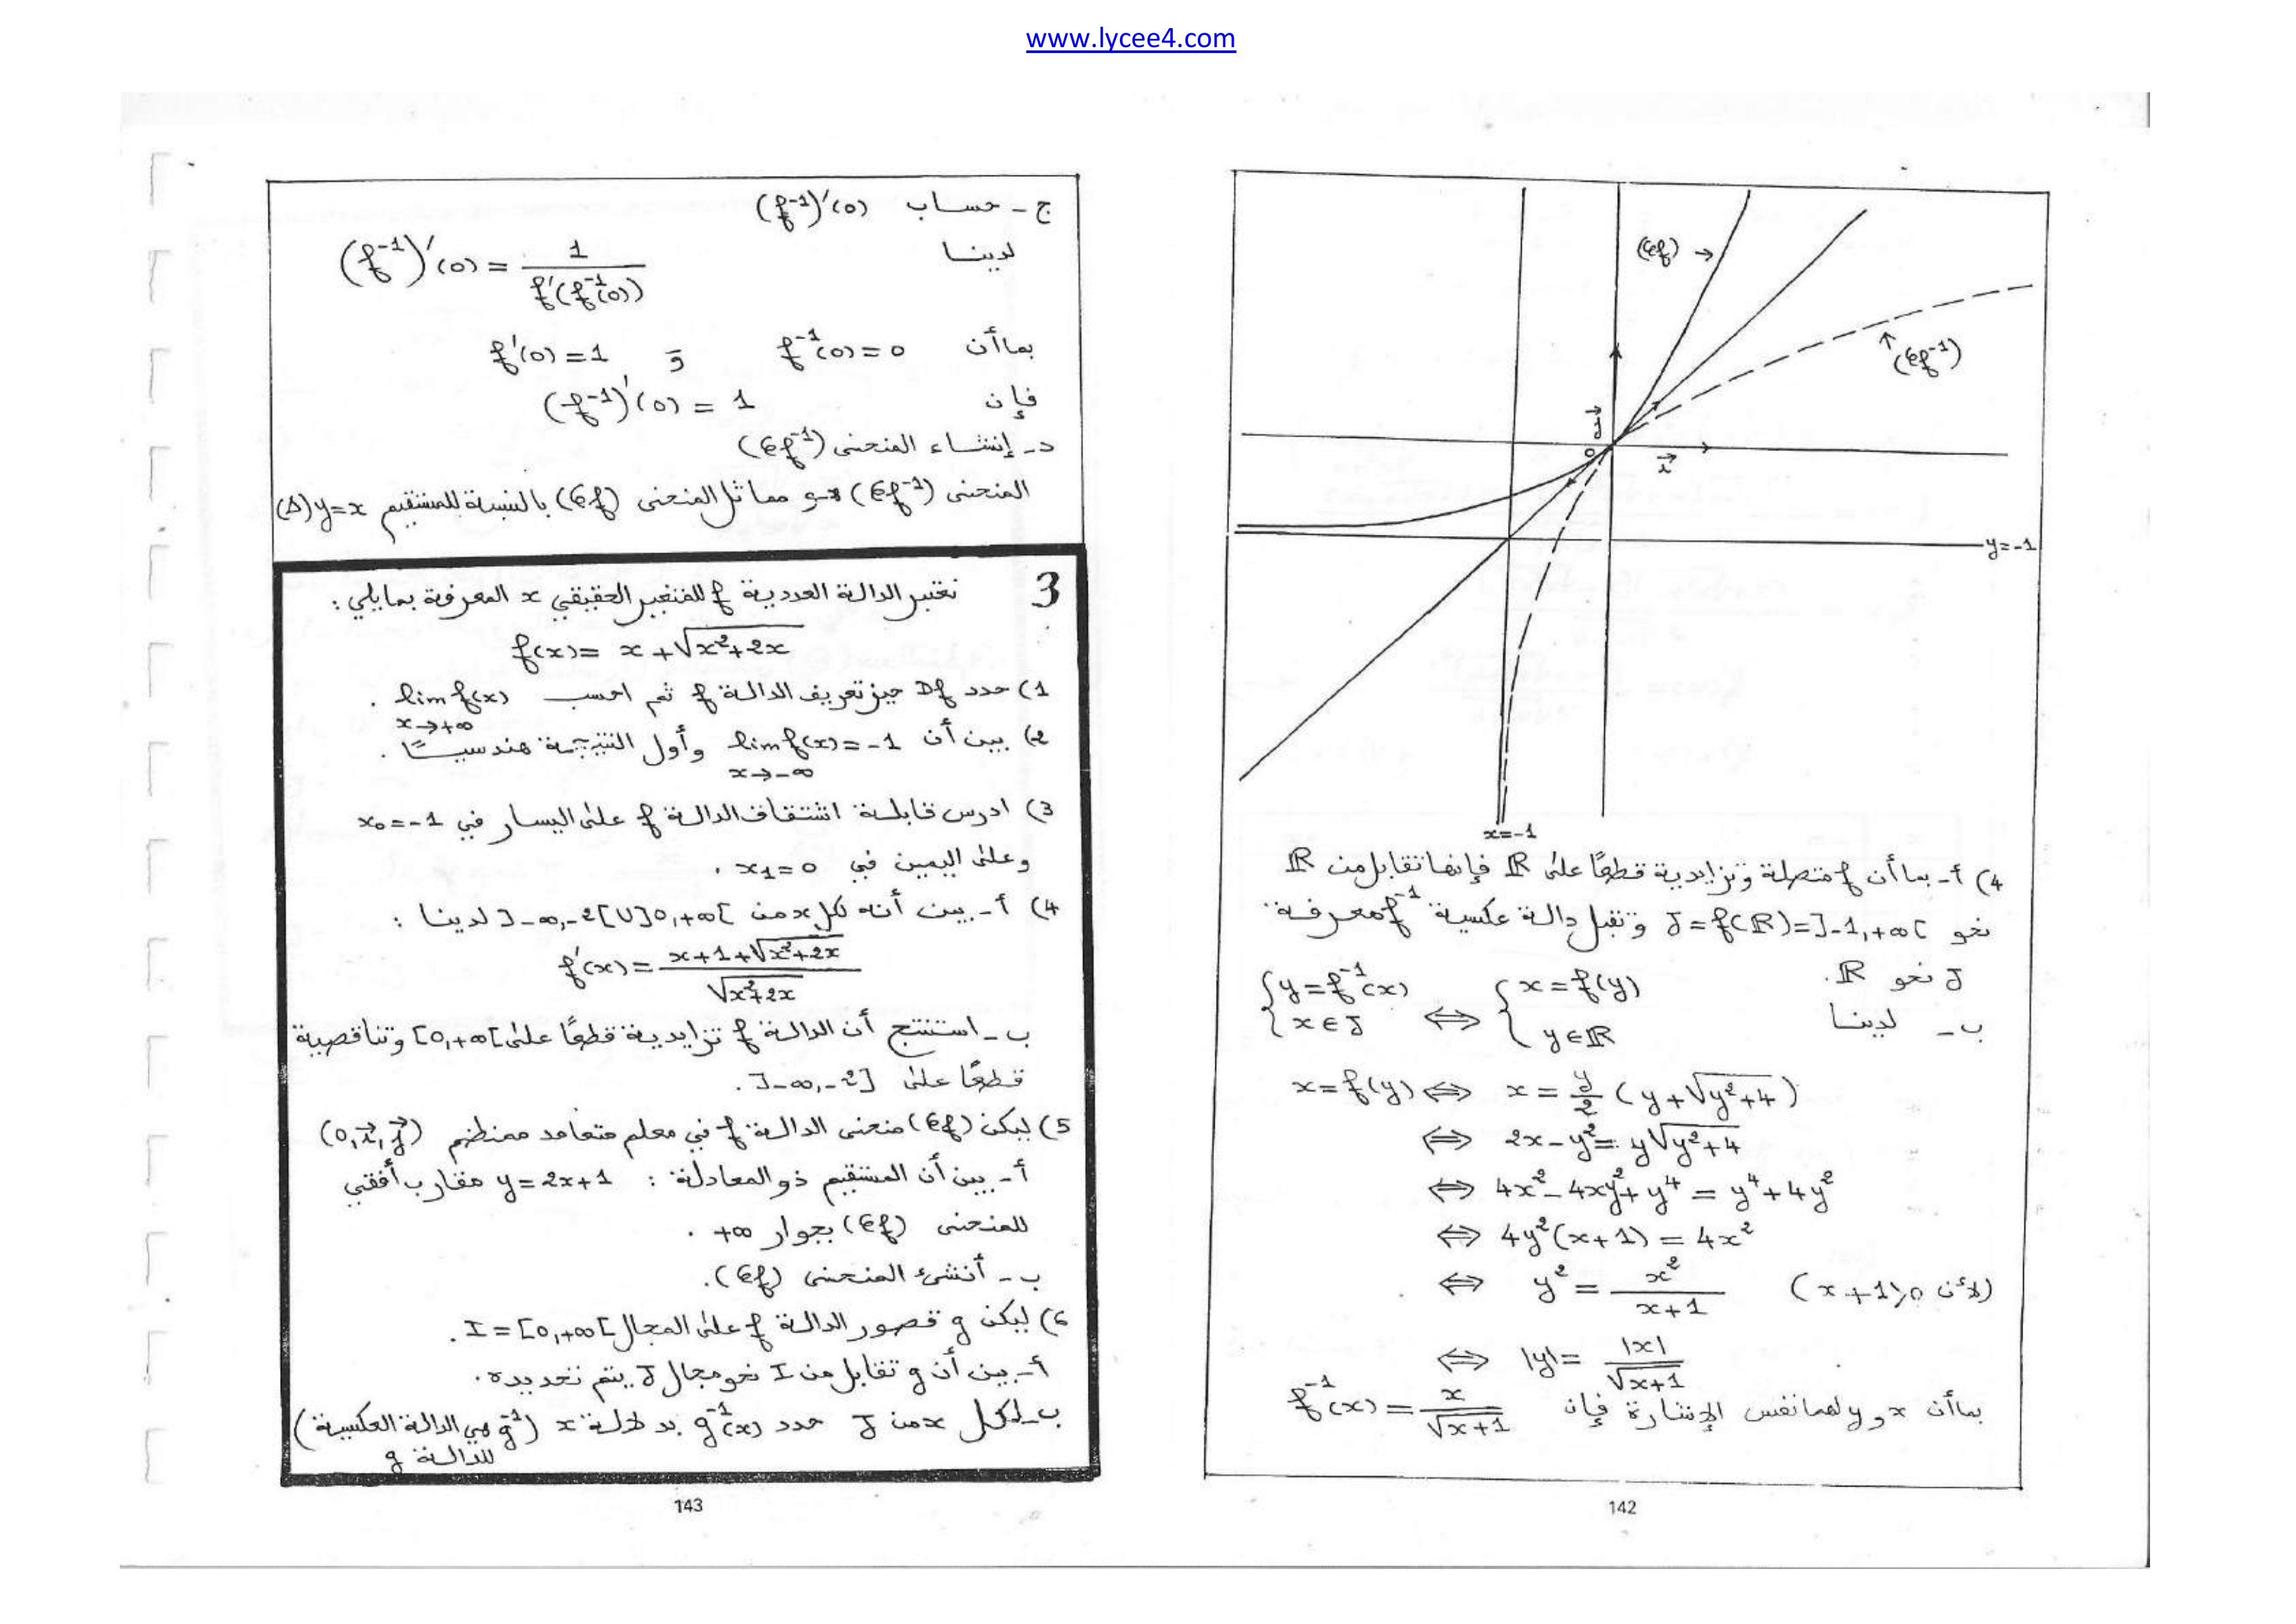 www.lycee4.com
(𝒞f) →
(𝒞f⁻¹)
j⃗
o
i⃗
y=-1
x=-1
4) أ- بما أن f متصلة وتزايدية قطعًا على ℝ فإنها تقابل من ℝ
نحو J = f(ℝ) = ]-1,+∞[ وتقبل دالة عكسية f⁻¹ معرفة
J نحو ℝ.
ب- لدينا { x = f(y) ; y ∈ ℝ ⟺ { y = f⁻¹(x) ; x ∈ J
x = f(y) ⟺ x = y/2 (y + √(y²+4))
⟺ 2x - y² = y√(y²+4)
⟺ 4x² - 4xy² + y⁴ = y⁴ + 4y²
⟺ 4y²(x+1) = 4x²
⟺ y² = x²/(x+1) (لأن x+1>0)
⟺ |y| = |x|/√(x+1)
بما أن x و y لهما نفس الإشارة فإن f⁻¹(x) = x/√(x+1)
142
ج - حساب (f⁻¹)'(0)
لدينا (f⁻¹)'(0) = 1/f'(f⁻¹(0))
بما أن f⁻¹(0) = 0 و f'(0) = 1
فإن (f⁻¹)'(0) = 1
د- إنشاء المنحنى (𝒞f⁻¹)
المنحنى (𝒞f⁻¹) هو مماثل المنحنى (𝒞f) بالنسبة للمستقيم (Δ) y=x
3 نعتبر الدالة العددية f للمتغير الحقيقي x المعرفة بمايلي :
f(x) = x + √(x²+2x)
1) حدد Df حيز تعريف الدالة f ثم احسب lim f(x) x→+∞ .
2) بين أن lim f(x) = -1 x→-∞ وأول النتيجة هندسيًا .
3) ادرس قابلية اشتقاق الدالة f على اليسار في x₀ = -1
وعلى اليمين في x₁ = 0 .
4) أ- بين أنه لكل x من ]-∞,-2[ U ]0,+∞[ لدينا :
f'(x) = (x+1+√(x²+2x))/√(x²+2x)
ب- استنتج أن الدالة f تزايدية قطعًا على [0,+∞[ وتناقصية
قطعًا على ]-∞,-2] .
5) ليكن (𝒞f) منحنى الدالة f في معلم متعامد ممنظم (0, i⃗, j⃗)
أ- بين أن المستقيم ذو المعادلة : y = 2x+1 مقارب أفقي
للمنحنى (𝒞f) بجوار +∞ .
ب- أنشئ المنحنى (𝒞f).
6) ليكن g قصور الدالة f على المجال I = [0,+∞[ .
أ- بين أن g تقابل من I نحو مجال J يتم تحديده.
ب- لكل x من J حدد g⁻¹(x) بدلالة x (g⁻¹ هي الدالة العكسية
للدالة g)
143